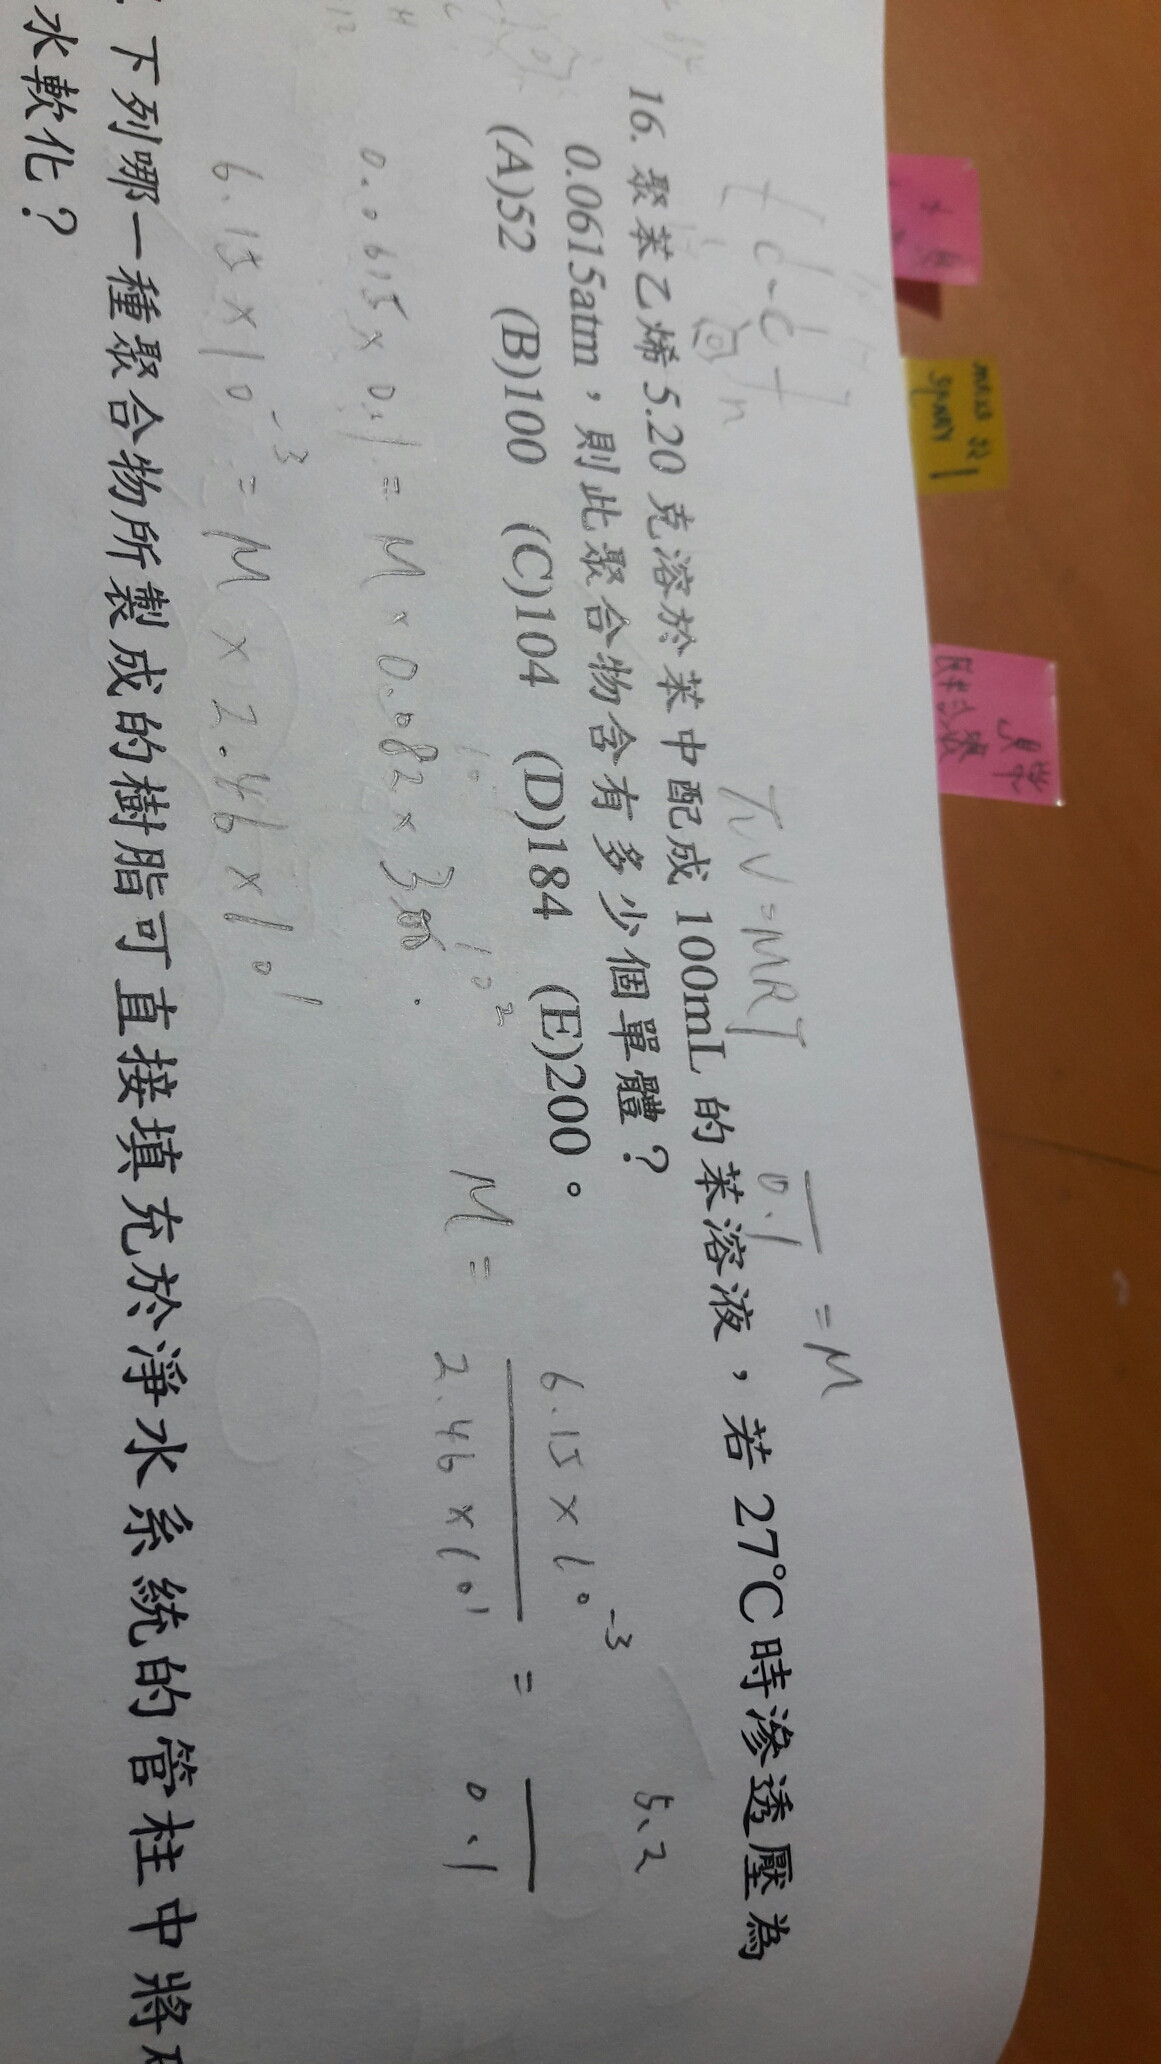 πV=MRT
0.1 = M
n
16. 聚苯乙烯 5.20 克溶於苯中配成 100mL 的苯溶液，若 27°C 時滲透壓為
0.0615atm，則此聚合物含有多少個單體？
(A)52 (B)100 (C)104 (D)184 (E)200。
0.0615 × 0.1 = M × 0.082 × 300
6.15 × 10⁻³ = M × 2.46 × 10¹
M = 6.15 × 10⁻³ / 2.46 × 10¹ = 5.2 / 0.1
下列哪一種聚合物所製成的樹脂可直接填充於淨水系統的管柱中將
水軟化？